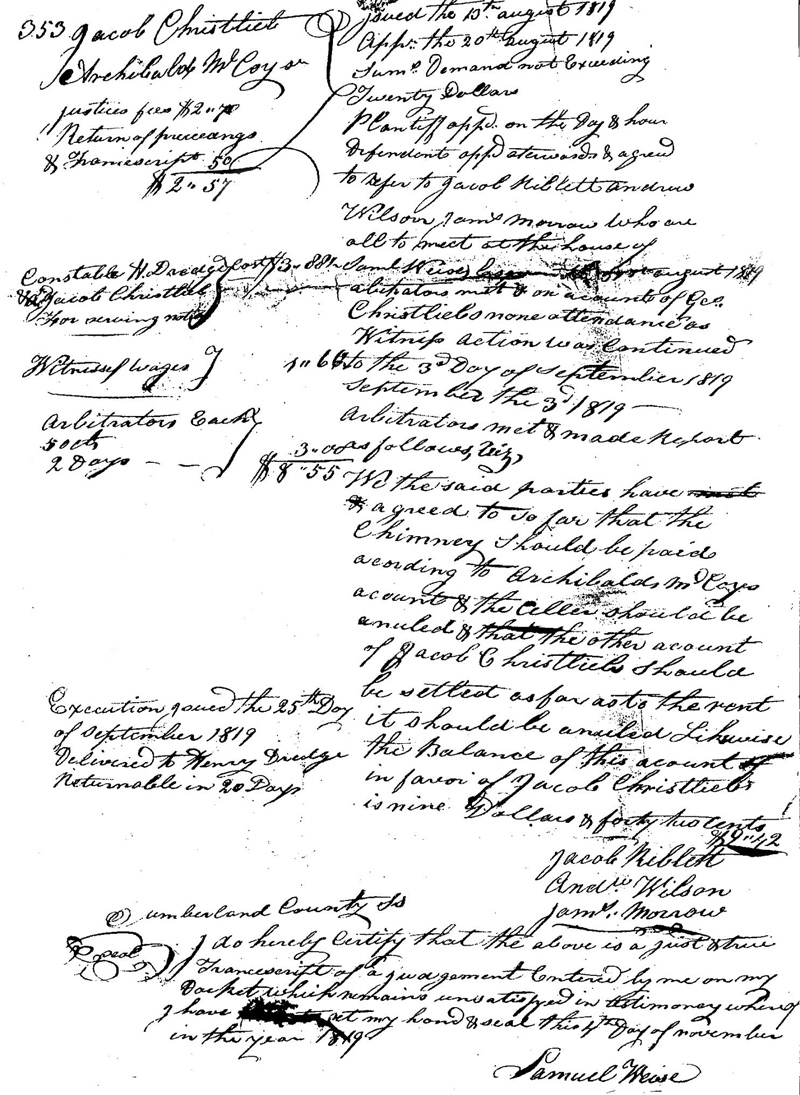 353 Jacob Christlieb
vs
Archibald McCoy
justices fees $2"7
Return of proceeangs
& Transcript 50
$2"57
Constable H. Dredge Cost $3"88½
& Jacob Christlieb
For serving note
Witnesses wages 1"66
Arbitrators Each
50 cts
2 Days - - 3"00
$8"55
Execution issued the 25th Day
of September 1819
Delivered to Henry Dredge
Returnable in 20 Days
issued the 13th august 1819
App. the 20th august 1819
Sum. Demand not Exceeding
Twenty Dollars
Plantiff appd. on the Day & hour
Defendente appd aterwards & agreed
to refer to Jacob Riblett andrew
Wilson Jams. Morrow who are
all to meet at the house of
Saml Weises august 1819
abitrators met & on acount of Geo.
Christliebs none attendance as
Witness action was Continued
to the 3d Day of September 1819
September the 3d 1819 —
Arbitrators met & made Report
as follows, Viz,
We the said parties have
& agreed to so far that the
Chimney should be paid
acording to Archibalds McCoys
acount & the Celler should be
anuled & that the other acount
of Jacob Christliebs should
be settled as far as to the rent
it should be anuled Likewise
the Balance of this acount
in favor of Jacob Christliebs
is nine Dollars & forty two cents
$9"42
Jacob Riblett
Andw Wilson
Jams. Morrow
Cumberland County Ss
Seal
I do hereby Certify that the above is a just & true
Transcript of a judgement Entered by me on my
Docket which remains unsatisfied in testimoney whereof
I have set my hand & seal this 4th Day of november
in the year 1819
Samuel Weise